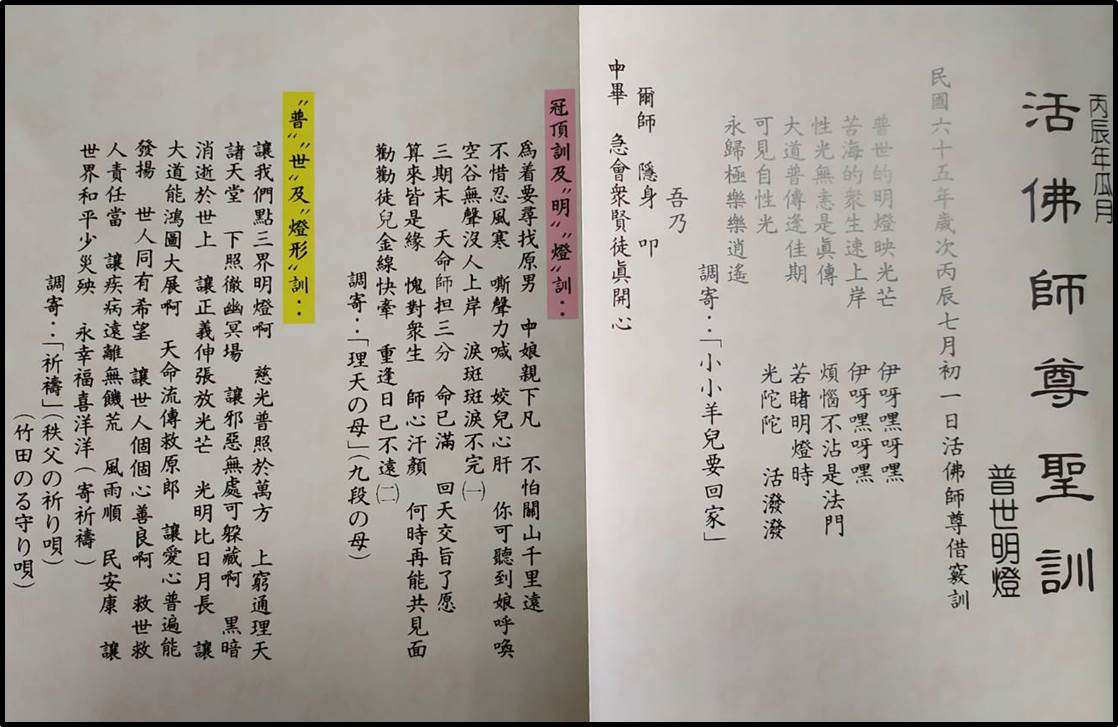 丙辰年瓜月
活佛師尊聖訓
普世明燈
民國六十五年歲次丙辰七月初一日活佛師尊借竅訓
普世的明燈映光芒　伊呀嘿呀嘿
苦海的衆生速上岸　伊呀嘿呀嘿
性光無恙是眞傳　煩惱不沾是法門
大道普傳逢佳期　若睹明燈時
可見自性光　光陀陀　活潑潑
永歸極樂樂逍遙
調寄：「小小羊兒要回家」
吾乃
爾師　隱身　叩
中畢　急會衆賢徒眞開心
冠頂訓及"明""燈"訓：
爲着要尋找原男　中娘親下凡　不怕關山千里遠
不惜忍風寒　嘶聲力喊　姣兒心肝　你可聽到娘呼喚
空谷無聲沒人上岸　淚斑斑淚不完㈠
三期末　天命師担三分　命已滿　回天交旨了愿
算來皆是緣　愧對衆生　師心汗顏　何時再能共見面
勸勸徒兒金線快牽　重逢日已不遠㈡
調寄：「理天の母」（九段の母）
"普""世"及"燈形"訓：
讓我們點三界明燈啊　慈光普照於萬方　上窮通理天
諸天堂　下照徹幽冥場　讓邪惡無處可躱藏啊　黑暗
消逝於世上　讓正義伸張放光芒　光明比日月長　讓
大道能鴻圖大展啊　天命流傳救原郎　讓愛心普遍能
發揚　世人同有希望　讓世人個個心善良啊　救世救
人責任當　讓疾病遠離無饑荒　風雨順　民安康　讓
世界和平少災殃　永幸福喜洋洋（寄祈禱）
調寄：「祈禱」（秩父の祈り唄）
（竹田のる守り唄）